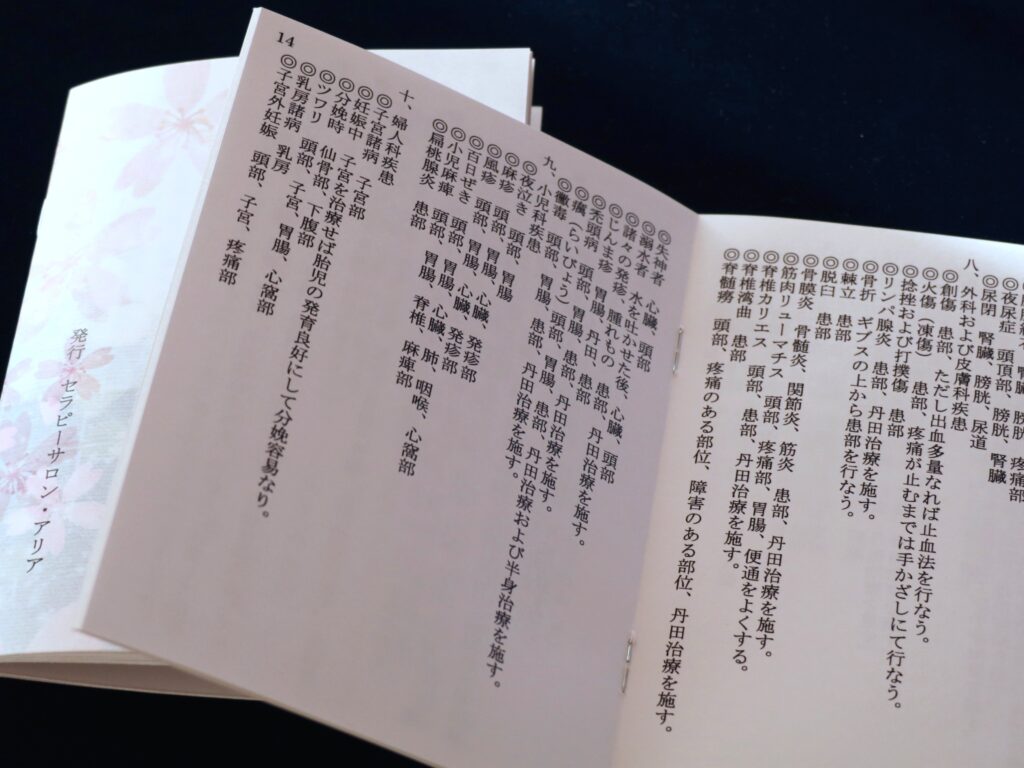 腎臓、膀胱、疼痛部
◎夜尿症　頭頂部、膀胱、腎臓
◎尿閉　腎臓、膀胱、尿道
八、外科および皮膚科疾患
◎創傷　患部、ただし出血多量なれば止血法を行なう。
◎火傷（凍傷）　患部、疼痛が止むまでは手かざしにて行なう。
◎捻挫および打撲傷　患部
◎リンパ腺炎　患部、丹田治療を施す。
◎骨折　ギプスの上から患部を行なう。
◎棘立　患部
◎脱臼　患部
◎骨膜炎　骨髄炎、関節炎、筋炎　患部、丹田治療を施す。
◎筋肉リューマチス　頭部、疼痛部、胃腸、便通をよくする。
◎脊椎カリエス　頭部、患部、丹田治療を施す。
◎脊椎湾曲　患部
◎脊髄癆　頭部、疼痛のある部位、障害のある部位、丹田治療を施す。
◎失神者　心臓、頭部
◎溺水者　水を吐かせた後、心臓、頭部
◎諸々の発疹、腫れもの
◎じんま疹　胃腸、丹田、患部、丹田治療を施す。
◎禿頭病　頭部、胃腸、患部、丹田治療を施す。
◎癩（らいびょう）　頭部、胃腸、患部、丹田治療を施す。
◎黴毒　頭部、胃腸、患部、丹田治療を施す。および半身治療を施す。
九、小児科疾患
◎夜泣き　頭部、胃腸
◎麻疹　頭部、胃腸、心臓、発疹部
◎風疹　頭部、胃腸、心臓、発疹部
◎百日ぜき　頭部、胃腸、心臓、肺、咽喉、心窩部
◎小児麻痺　頭部、胃腸、脊椎、麻痺部
◎扁桃腺炎　患部
十、婦人科疾患
◎子宮諸病　子宮部
◎妊娠中　子宮を治療せば胎児の発育良好にして分娩容易なり。
◎分娩時　仙骨部、下腹部
◎ツワリ　頭部、子宮、胃腸、心窩部
◎乳房諸病　乳房
◎子宮外妊娠　頭部、子宮、疼痛部
14
発行　セラピーサロン・アリア